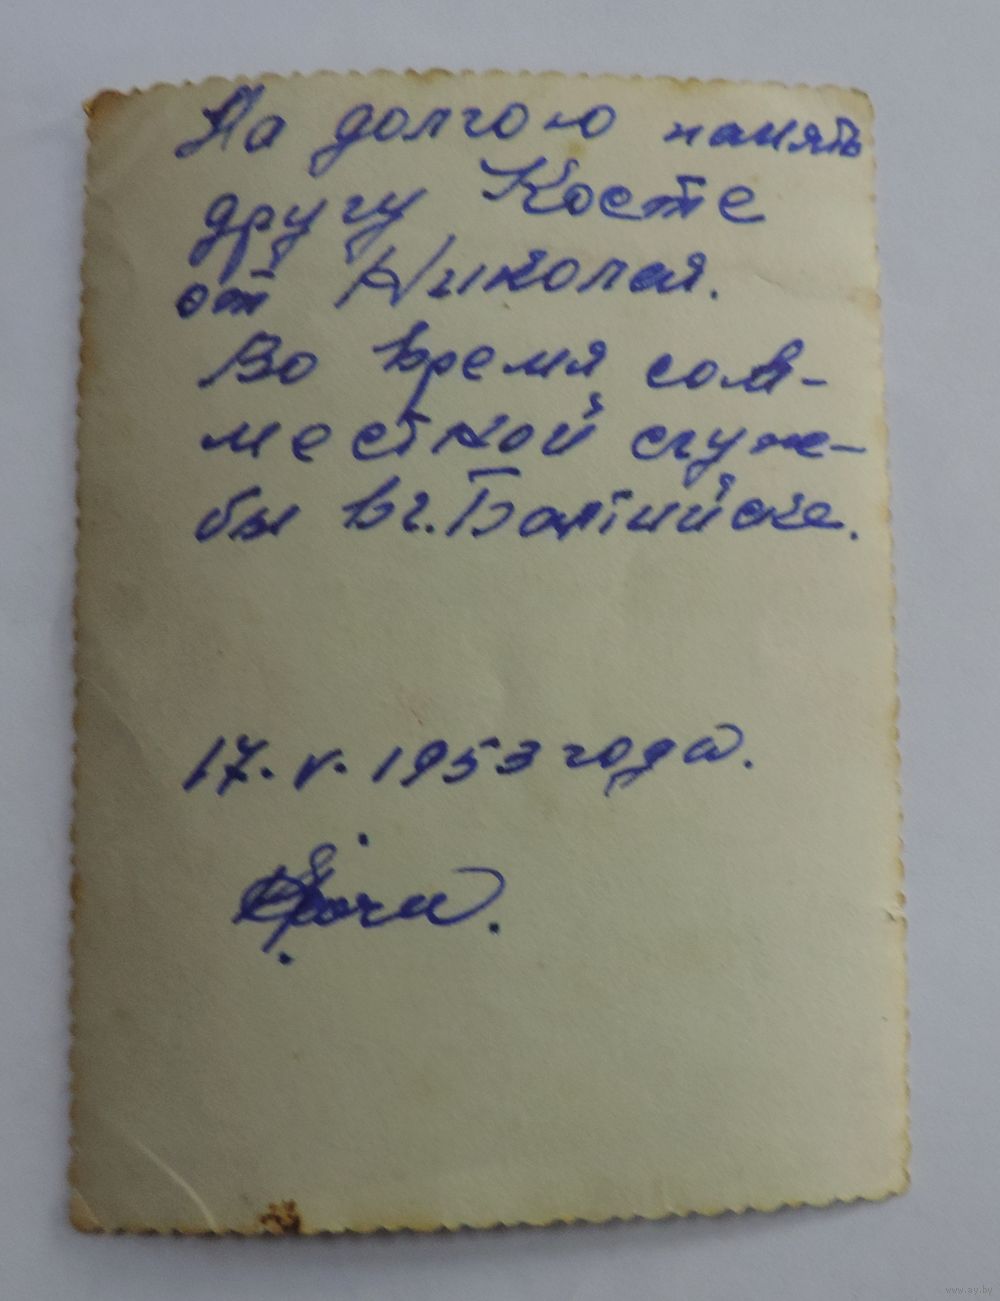 На долгою память
другу Косте
от Николая.
Во время сов-
месткой служ-
бы в г. Балтийске.
17. V. 1953 года.
www.ay.by